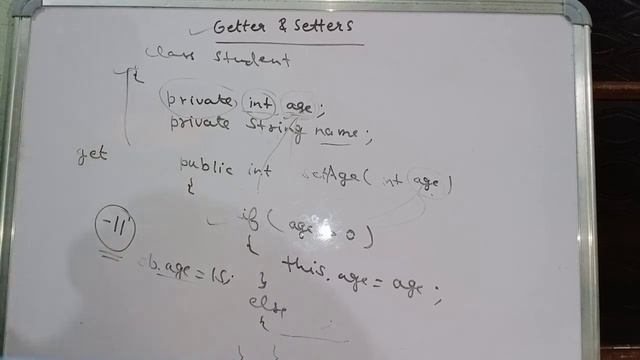 Getter & Setters
class Student
{
private int age;
private String name;
get
public int setAge( int age)
{
if ( age > 0 )
-11
{ this.age = age ;
ob.age = 15; }
else
{
} }